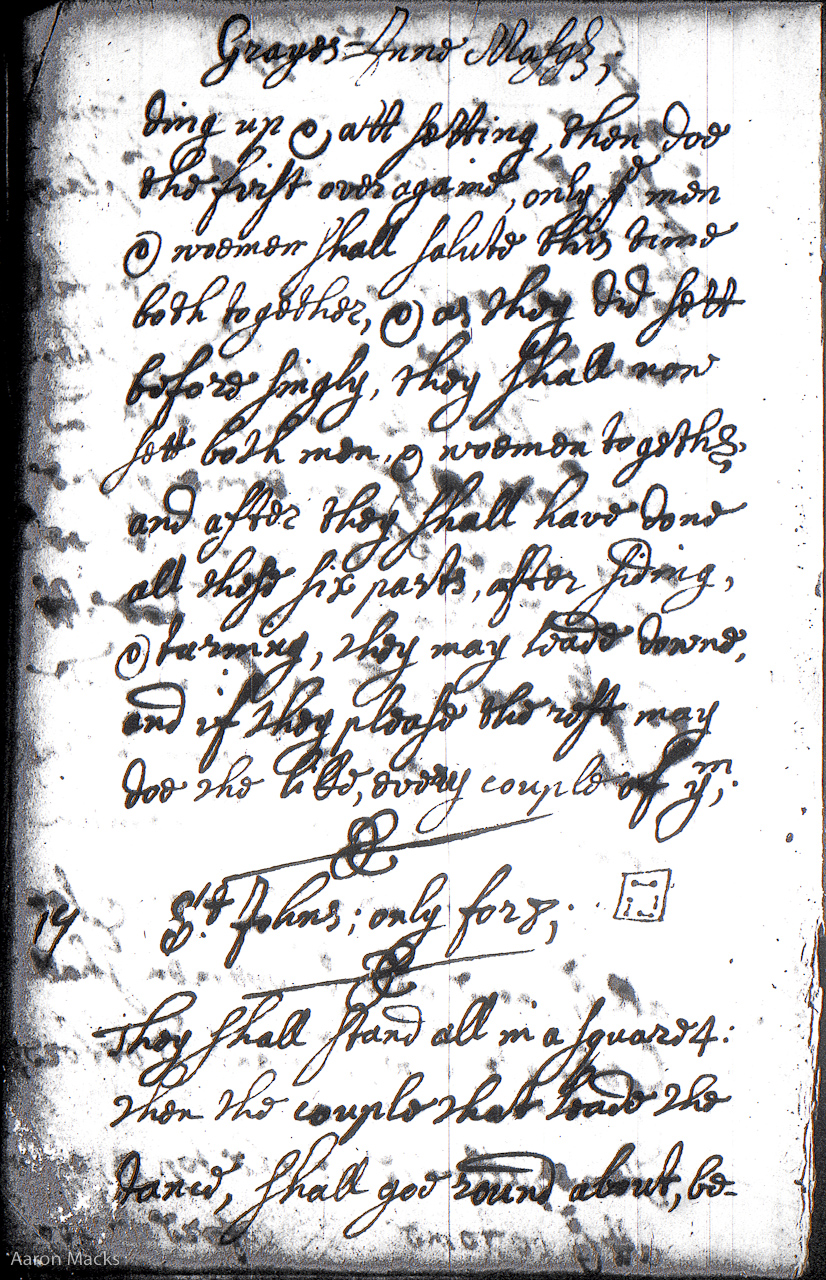 Grayes-Inne Masqȝ;
ding up & att setting, then doe
the first over againe, only yᵉ men
& woemen shall salute this time
both together, & as they did sett
before singly, they shall now
sett both men, & woemen togethȝ,
and after they shall have done
all these six parts, after siding,
& turning, they may leade downe,
and if they please the rest may
doe the like, every couple of yᵐ;
19 Sᵗ. Johns; only for 8;
They shall stand all in a square 4:
then the couple that leade the
dance, shall goe round about, be-
Aaron Macks